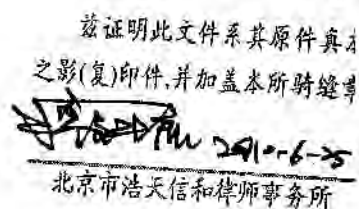 兹证明此文件系其原件真
之影(复)印件,并加盖本所骑缝章
2010-6-25
北京市浩天信和律师事务所